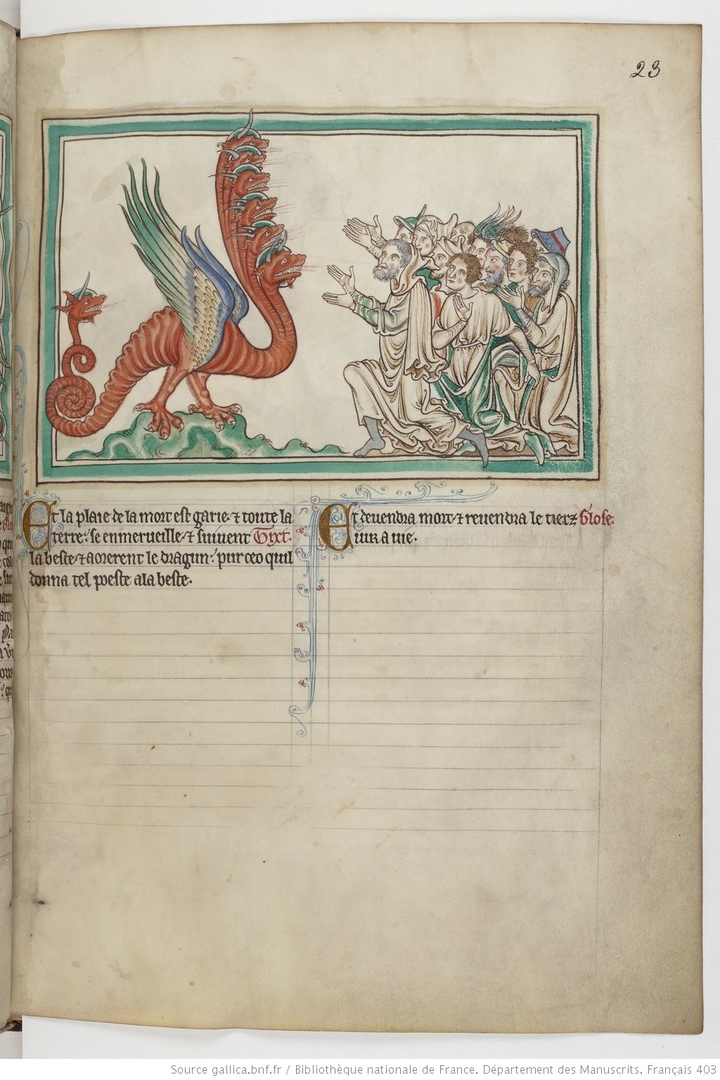 23
Et la plaie de la mort est garie ⁊ toute la
terre se enmerveille ⁊ suivent Tixt.
la beste ⁊ aorerent le dragun pur ceo quil
donna tel poeste a la beste.
Et devendra mort ⁊ revendra le tierz Glose.
iur a vie.
Source gallica.bnf.fr / Bibliothèque nationale de France. Département des Manuscrits. Français 403